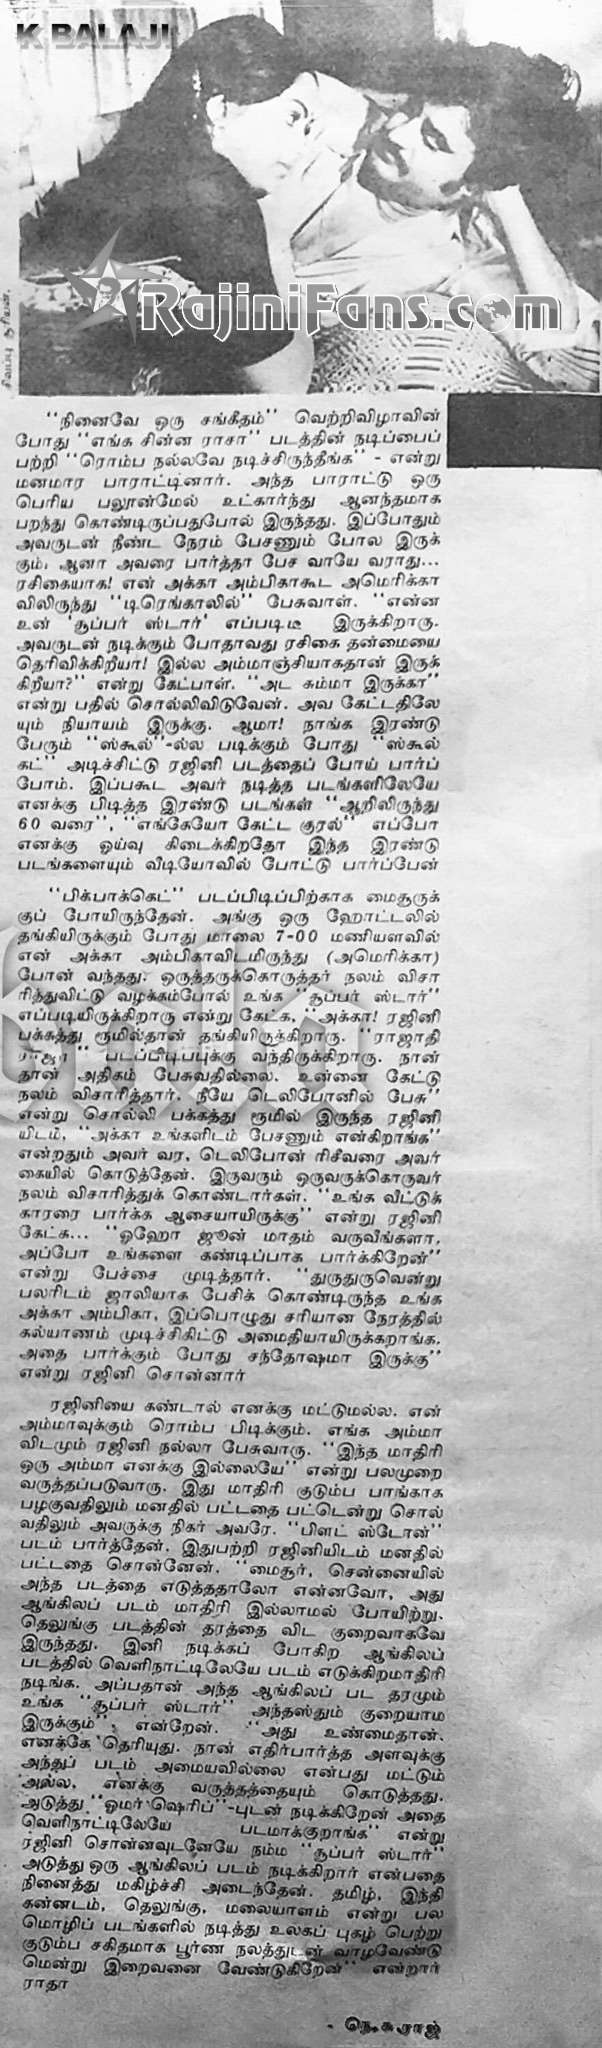 K BALAJI
RajiniFans.com
சிவப்பு சூரியன்.
"நினைவே ஒரு சங்கீதம்" வெற்றிவிழாவின்
போது "எங்க சின்ன ராசா" படத்தின் நடிப்பைப்
பற்றி "ரொம்ப நல்லவே நடிச்சிருந்தீங்க" - என்று
மனமார பாராட்டினார். அந்த பாராட்டு ஒரு
பெரிய பலூன்மேல் உட்கார்ந்து ஆனந்தமாக
பறந்து கொண்டிருப்பதுபோல் இருந்தது. இப்போதும்
அவருடன் நீண்ட நேரம் பேசணும் போல இருக்
கும். ஆனா அவரை பார்த்தா பேச வாயே வராது...
ரசிகையாக! என் அக்கா அம்பிகாகூட அமெரிக்கா
விலிருந்து "டிரெங்காலில்" பேசுவாள். "என்ன
உன் 'சூப்பர் ஸ்டார்' எப்படிடீ இருக்கிறாரு.
அவருடன் நடிக்கும் போதாவது ரசிகை தன்மையை
தெரிவிக்கிறீயா! இல்ல அம்மாஞ்சியாகதான் இருக்
கிறீயா?" என்று கேட்பாள். "அட சும்மா இருக்கா"
என்று பதில் சொல்லிவிடுவேன். அவ கேட்டதிலே
யும் நியாயம் இருக்கு. ஆமா! நாங்க இரண்டு
பேரும் "ஸ்கூல்"-ல்ல படிக்கும் போது "ஸ்கூல்
கட்" அடிச்சிட்டு ரஜினி படத்தைப் போய் பார்ப்
போம். இப்பகூட அவர் நடித்த படங்களிலேயே
எனக்கு பிடித்த இரண்டு படங்கள் "ஆறிலிருந்து
60 வரை", "எங்கேயோ கேட்ட குரல்" எப்போ
எனக்கு ஓய்வு கிடைக்கிறதோ இந்த இரண்டு
படங்களையும் வீடியோவில் போட்டு பார்ப்பேன்
"பிக்பாக்கெட்" படப்பிடிப்பிற்காக மைசூருக்
குப் போயிருந்தேன். அங்கு ஒரு ஹோட்டலில்
தங்கியிருக்கும் போது மாலை 7-00 மணியளவில்
என் அக்கா அம்பிகாவிடமிருந்து (அமெரிக்கா)
போன் வந்தது. ஒருத்தருக்கொருத்தர் நலம் விசா
ரித்துவிட்டு வழக்கம்போல் உங்க "சூப்பர் ஸ்டார்"
எப்படியிருக்கிறாரு என்று கேட்க, "அக்கா! ரஜினி
பக்கத்து ரூமில்தான் தங்கியிருக்கிறாரு. "ராஜாதி
ராஜா" படப்பிடிப்புக்கு வந்திருக்கிறாரு. நான்
தான் அதிகம் பேசுவதில்லை. உன்னை கேட்டு
நலம் விசாரித்தார். நீயே டெலிபோனில் பேசு"
என்று சொல்லி பக்கத்து ரூமில் இருந்த ரஜினி
யிடம், "அக்கா உங்களிடம் பேசணும் என்கிறாங்க"
என்றதும் அவர் வர, டெலிபோன் ரிசீவரை அவர்
கையில் கொடுத்தேன். இருவரும் ஒருவருக்கொருவர்
நலம் விசாரித்துக் கொண்டார்கள். "உங்க வீட்டுக்
காரரை பார்க்க ஆசையாயிருக்கு" என்று ரஜினி
கேட்க... "ஓஹோ ஜூன் மாதம் வருவீங்களா,
அப்போ உங்களை கண்டிப்பாக பார்க்கிறேன்"
என்று பேச்சை முடித்தார். "துருதுருவென்று
பலரிடம் ஜாலியாக பேசிக் கொண்டிருந்த உங்க
அக்கா அம்பிகா, இப்பொழுது சரியான நேரத்தில்
கல்யாணம் முடிச்சிகிட்டு அமைதியாயிருக்கறாங்க.
அதை பார்க்கும் போது சந்தோஷமா இருக்கு"
என்று ரஜினி சொன்னார்
ரஜினியை கண்டால் எனக்கு மட்டுமல்ல. என்
அம்மாவுக்கும் ரொம்ப பிடிக்கும். எங்க அம்மா
விடமும் ரஜினி நல்லா பேசுவாரு. "இந்த மாதிரி
ஒரு அம்மா எனக்கு இல்லையே" என்று பலமுறை
வருத்தப்படுவாரு. இது மாதிரி குடும்ப பாங்காக
பழகுவதிலும் மனதில் பட்டதை பட்டென்று சொல்
வதிலும் அவருக்கு நிகர் அவரே. "பிளட் ஸ்டோன்"
படம் பார்த்தேன். இதுபற்றி ரஜினியிடம் மனதில்
பட்டதை சொன்னேன். "மைசூர், சென்னையில்
அந்த படத்தை எடுத்ததாலோ என்னவோ, அது
ஆங்கிலப் படம் மாதிரி இல்லாமல் போயிற்று.
தெலுங்கு படத்தின் தரத்தை விட குறைவாகவே
இருந்தது. இனி நடிக்கப் போகிற ஆங்கிலப்
படத்தில் வெளிநாட்டிலேயே படம் எடுக்கிறமாதிரி
நடிங்க. அப்பதான் அந்த ஆங்கிலப் பட தரமும்
உங்க "சூப்பர் ஸ்டார்" அந்தஸ்தும் குறையாம
இருக்கும்", என்றேன். "அது உண்மைதான்.
எனக்கே தெரியுது. நான் எதிர்பார்த்த அளவுக்கு
அந்தப் படம் அமையவில்லை என்பது மட்டும்
அல்ல, எனக்கு வருத்தத்தையும் கொடுத்தது.
அடுத்து "ஓமர் ஷெரிப்"-புடன் நடிக்கிறேன் அதை
வெளிநாட்டிலேயே படமாக்குறாங்க" என்று
ரஜினி சொன்னவுடனேயே நம்ம "சூப்பர் ஸ்டார்"
அடுத்து ஒரு ஆங்கிலப் படம் நடிக்கிறார் என்பதை
நினைத்து மகிழ்ச்சி அடைந்தேன். தமிழ், இந்தி
கன்னடம், தெலுங்கு, மலையாளம் என்று பல
மொழிப் படங்களில் நடித்து உலகப் புகழ் பெற்று
குடும்ப சகிதமாக பூர்ண நலத்துடன் வாழவேண்டு
மென்று இறைவனை வேண்டுகிறேன்" என்றார்
ராதா
- நெ.சுராஜ்